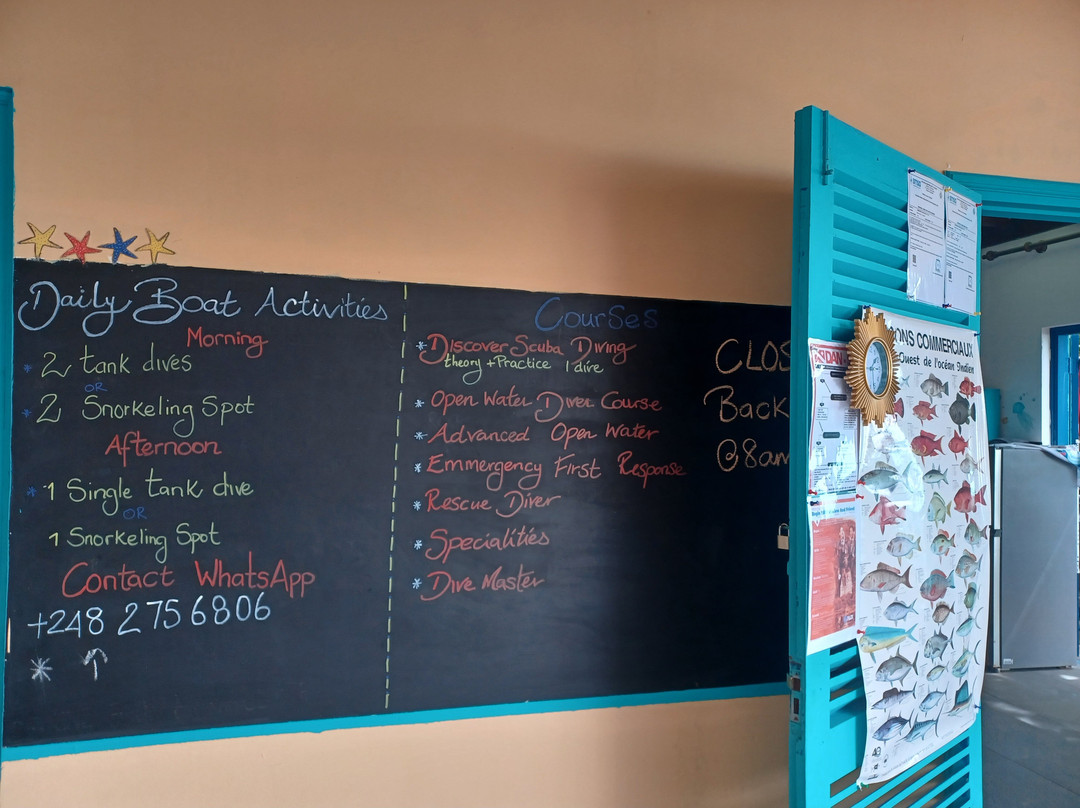 Daily Boat Activities
Morning
* 2 tank dives
OR
* 2 Snorkeling Spot
Afternoon
* 1 Single tank dive
OR
1 Snorkeling Spot
Contact WhatsApp
+248 2 75 6806
*
Courses
* Discover Scuba Diving
theory + Practice 1 dive
* Open Water Diver Course
* Advanced Open Water
* Emmergency First Response
* Rescue Diver
* Specialities
* Dive Master
CLOS
Back
@8am
DAN
ONS COMMERCIAUX
Ouest de l'océan Indien